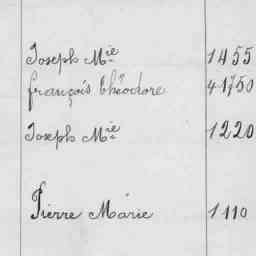 Joseph Mie 1455
françois théodore 41750
Joseph Mie 1220
Pierre Marie 1110